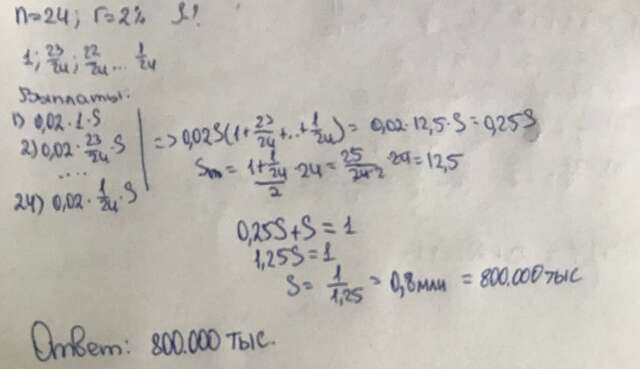 n=24; r=2% S?
1; 23/24; 22/24 ... 1/24
Выплаты:
1) 0,02·1·S
2) 0,02·23/24·S
....
24) 0,02·1/24·S
=> 0,02S(1+23/24+...+1/24)= 0,02·12,5·S=0,25S
Sm = (1+1/24)/2 ·24 = 25/(24·2) ·24=12,5
0,25S+S=1
1,25S=1
S= 1/1,25 = 0,8 млн = 800.000 тыс
Ответ: 800.000 тыс.